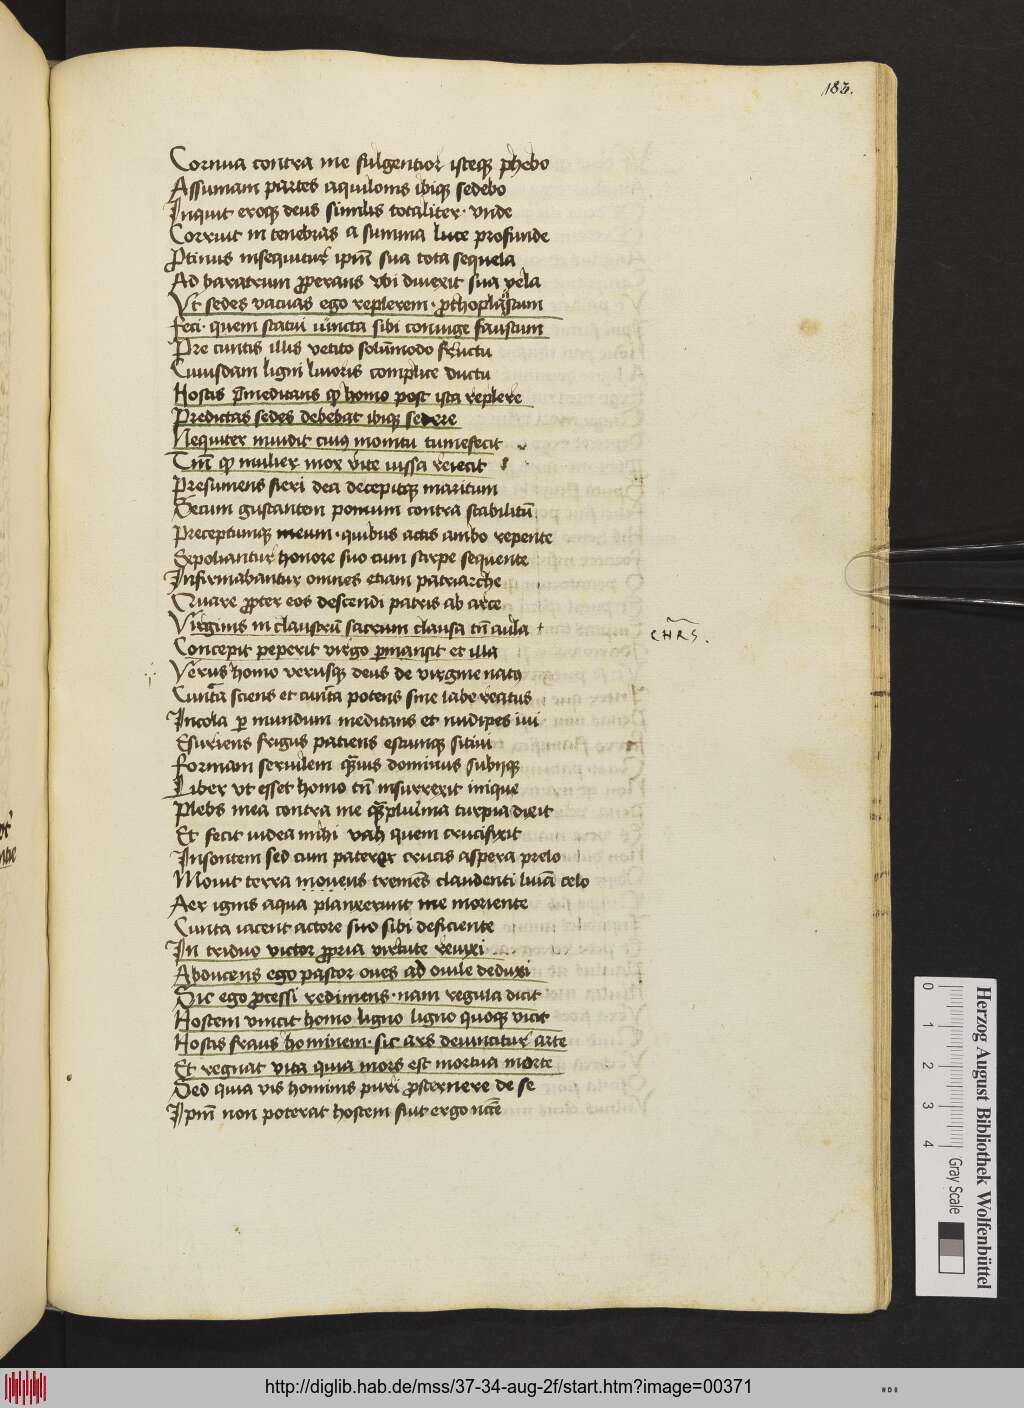 183.
Cornua contra me fulgentior isteq phebo
Assumam partes aquilonis ibiq sedebo
Inquit eroq deus similis totaliter · vnde
Corruit in tenebras a summa luce profunde
Ptinus insequitur ipm sua tota sequela
Ad baratrum pperans vbi diuexit sua vela
Vt sedes vacuas ego replerem · pthoplastum
Feci · quem statui iuncta sibi coniuge faustum
Pre cunctis illis vetito solumodo fructu
Cuiusdam ligni liuoris complice ductu
Hostis pmeditans q homo post ista replere
Predictas sedes debebat ibiq sedere
Nequiter inuidit cui9 monitu tumefecit
Tm q mulier mox vite iussa reiecit
Presumens fieri dea decepitq maritum
Secum gustantem pomum contra stabilitu
Preceptumq meum · quibus actis ambo repente
Sepoliantur honore suo cum stirpe sequente
Infirmabantur omnes etiam patriarche
Quare ppter eos descendi patris ab arce
Virginis in claustru sacrum clausa tn aula
CHRS.
Concepit peperit virgo pmansit et illa
Verus homo verusq deus de virgine nat9
Cuncta sciens et cuncta potens sine labe reatus
Incola p mundum meditans et nudipes iui
Esuriens frigus patiens estumq sitiui
Formam seruilem quis dominus subijq
Liber vt esset homo tn insurrexit inique
Plebs mea contra me qplurima turpia dixit
Et fecit iudea mihi vah quem crucifixit
Insontem sed cum paterer crucis aspera prelo
Mouit terra mouens tremens claudenti luia celo
Aer ignis aqua planxerunt me moriente
Cuncta iacent actore suo sibi deficiente
In triduo victor ppria virtute reuixi
Abducens ego pastor oues ad ouile deduxi
Sic ego pcessi redimens · nam regula dicit
Hostem vincit homo ligno ligno quoq vicit
Hostis fraus hominem · sic ars deuincitur arte
Et regnat vita quia mors est mortua morte
Sed quia vis hominis puri psternere de se
Ipm non poterat hostem fuit ergo ncce
Herzog August Bibliothek Wolfenbüttel
0 1 2 3 4
Gray Scale
http://diglib.hab.de/mss/37-34-aug-2f/start.htm?image=00371